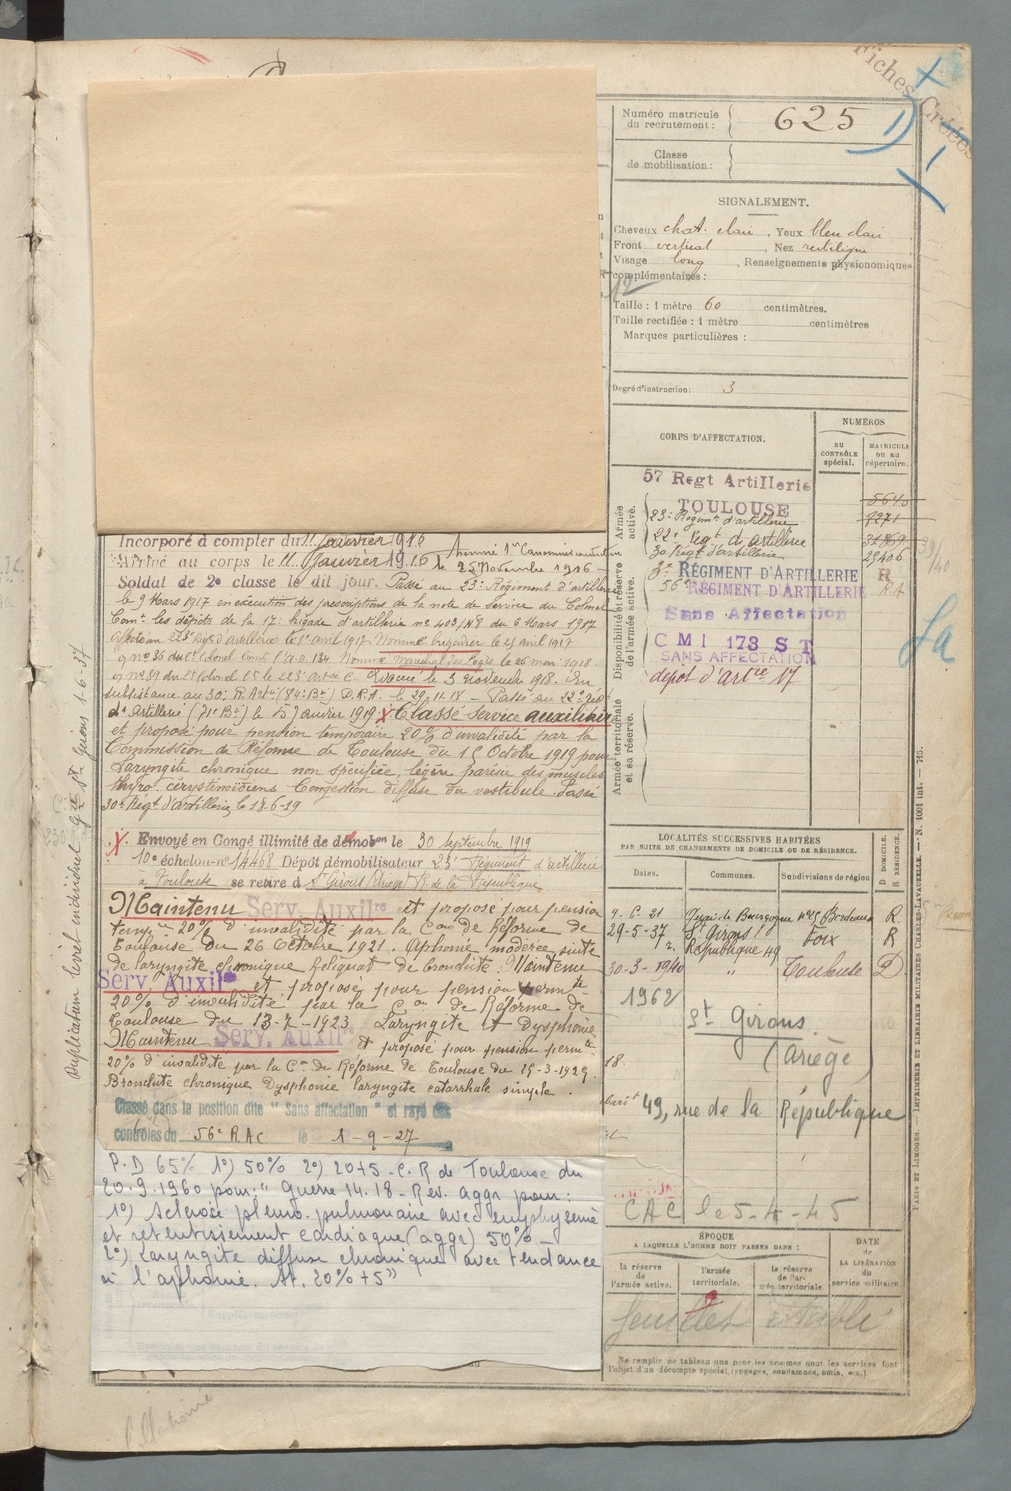 Fiches Créées
Numéro matricule
du recrutement :
625
Classe
de mobilisation :
SIGNALEMENT.
Cheveux chat. clair, Yeux bleu clair
Front vertical, Nez rectiligne
Visage long, Renseignements physionomiques
complémentaires :
Taille : 1 mètre 60 centimètres.
Taille rectifiée : 1 mètre centimètres
Marques particulières :
Degré d'instruction : 3
CORPS D'AFFECTATION.
NUMÉROS
au
CONTRÔLE
spécial.
MATRICULE
ou au
répertoire.
Armée
active.
57 Regt Artillerie
TOULOUSE
23e Régimt d'artillerie
22e Regt d'artillerie
30 Regt d'artillerie
5640
9271
23406
Disponibilité et réserve
de l'armée active.
RÉGIMENT D'ARTILLERIE R
56e RÉGIMENT D'ARTILLERIE RA
Sans Affectation
CMI 173 ST
SANS AFFECTATION
dépôt d'artie 17
Armée territoriale
et sa réserve.
Incorporé à compter du 11 Janvier 1916
Arrivé au corps le 11 Janvier 1916
le 25 Novembre 1916
Soldat de 2e classe le dit jour. Passé au 23e Régiment d'artillerie
le 9 Mars 1917 en exécution des prescriptions de la note de service du Colonel
Comt les dépôts de la 17e brigade d'artillerie no 403/N8 du 6 Mars 1917
le 1er avril 1917 Nommé brigadier le 25 avril 1917
Nommé Maréchal des Logis le 26 mai 1918
Evacué le 3 novembre 1918. En
subsistance au 30e R. Artie (84e Bie) D.R.A. le 29.11.18 – Passé au 22e Régt
d'Artillerie (71e Bie) le 15 Janvier 1919 X Classé Service auxiliaire
et proposé pour pension temporaire 20% d'invalidité par la
Commission de Réforme de Toulouse du 15 Octobre 1919 pour
Laryngite chronique non spécifiée, légère parésie des muscles
Congestion diffuse du vestibule. Passé
30e Régt d'Artillerie le 18-6-19
X Envoyé en Congé illimité de démobon le 30 septembre 1919
10e échelon no 14468 Dépôt démobilisateur 23e Régiment d'artillerie
à Toulouse se retire à St Girons (Ariège) R. de la République
Maintenu Serv. Auxilre et proposé pour pension
tempre 20% d'invalidité par la Con de Réforme de
Toulouse du 26 Octobre 1921. Aphonie modérée suite
de laryngite chronique Reliquat de bronchite. Maintenu
Serv. Auxil et proposé pour pension permte
20% d'invalidité par la Con de Réforme de
Toulouse du 13-7-1923 Laryngite et Dysphonie
Maintenu Serv. Auxil et proposé pour pension permte
20% d'invalidité par la Con de Réforme de Toulouse du 15-3-1929.
Bronchite chronique Dysphonie laryngite catarrhale simple.
Classé dans la position dite "Sans affectation" et rayé des
contrôles du 56e RAC le 1-9-27
P.D 65% 1°) 50% 2°) 20+5 - C.R de Toulouse du
20.9.1960 pour : "Guerre 14.18 - Rés. aggr pour :
1°) Sclérose pleuro-pulmonaire avec emphysème
et retentissement cardiaque (aggr) 50% –
2°) Laryngite diffuse chronique avec tendance
à l'aphonie. At. 20%+5"
Duplicatum livret individuel St Girons 1-6-37
LOCALITÉS SUCCESSIVES HABITÉES
PAR SUITE DE CHANGEMENTS DE DOMICILE OU DE RÉSIDENCE.
Dates.
Communes.
Subdivisions de région
D DOMICILE.
R RÉSIDENCE.
9-6-21 Quai de Bourgogne no 25 Bordeaux R
29-5-37 St Girons Foix R
r. République 49
30-3-1940 " Toulouse D
1962
St Girons.
(Ariège)
49, rue de la République
CAC le 5-4-45
ÉPOQUE
A LAQUELLE L'HOMME DOIT PASSER DANS :
la réserve
de
l'armée active.
l'armée
territoriale.
la réserve
de l'ar-
mée territoriale.
DATE
de
LA LIBÉRATION
du
service militaire.
feuillet établi
Ne remplir ce tableau que pour les hommes dont les services font
l'objet d'un décompte spécial, (engagés, condamnés, omis, etc.).
PARIS ET LIMOGES. — IMPRIMERIE ET LIBRAIRIE MILITAIRES CHARLES-LAVAUZELLE. — N. 1001 int. — 715.